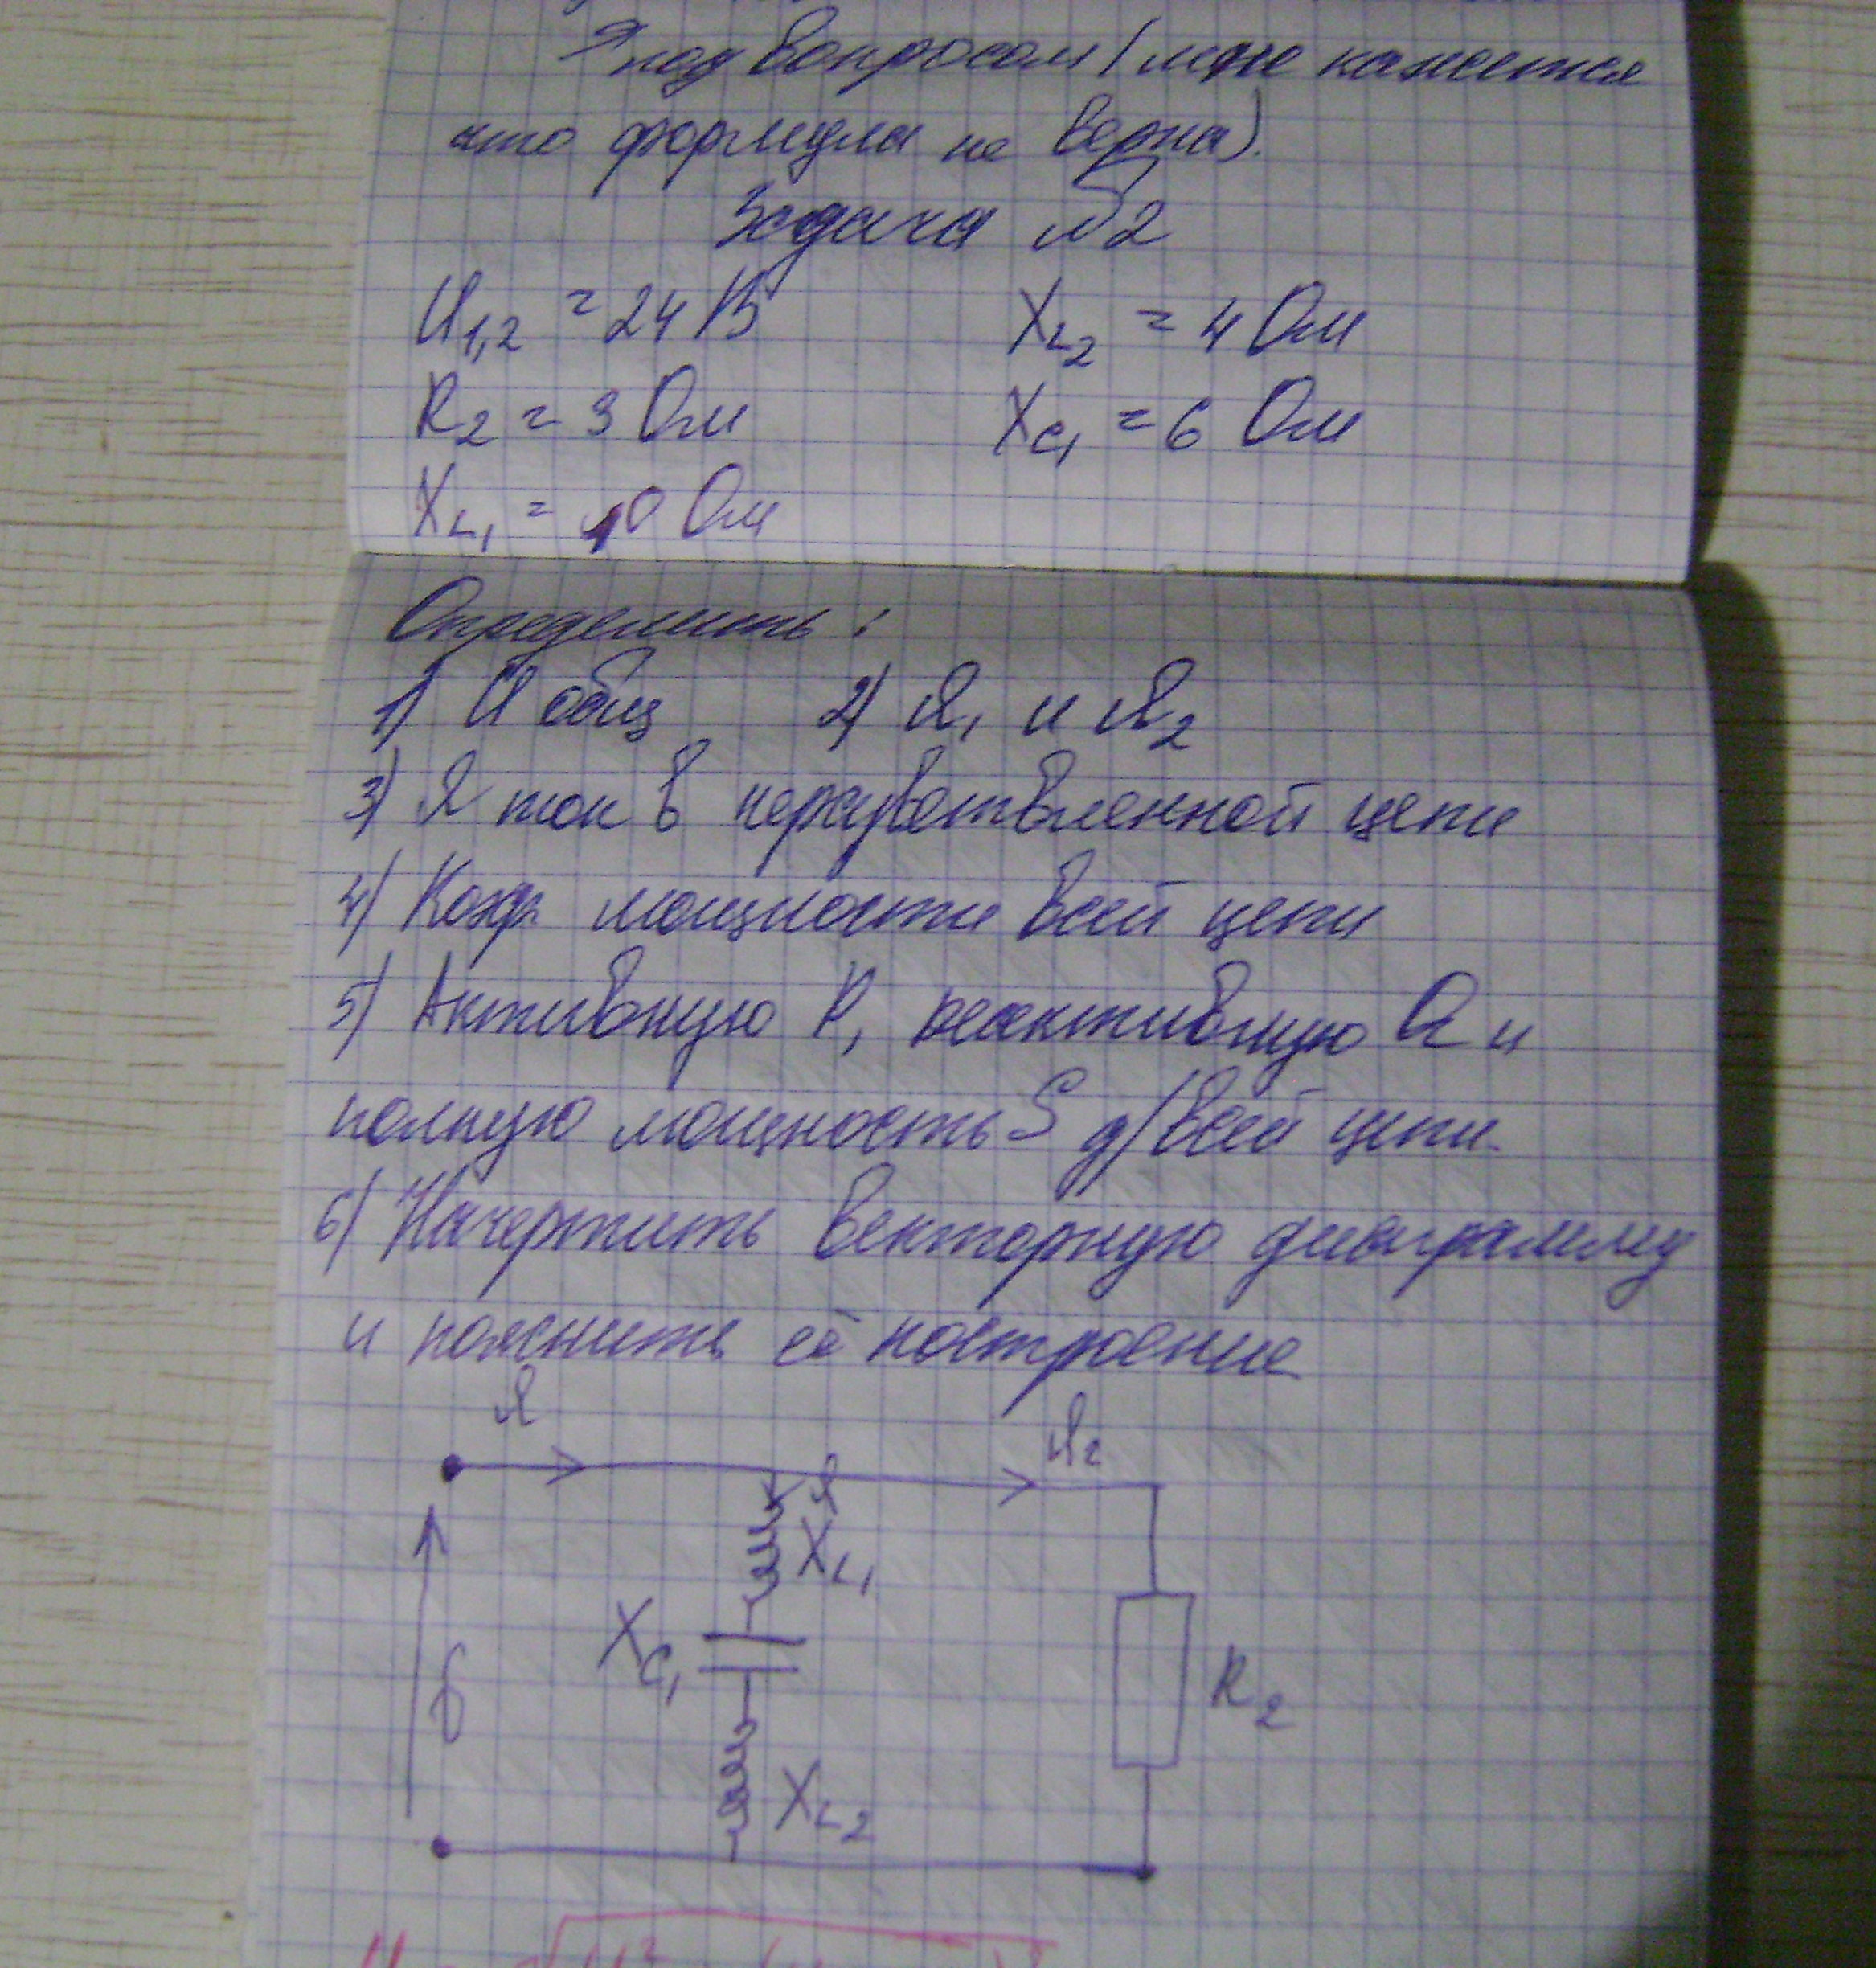 I под вопросом (мне кажется
что формула не верна).
Задача №2
U1,2 = 24 В XL2 = 4 Ом
R2 = 3 Ом XC1 = 6 Ом
XL1 = 10 Ом
Определить:
1) U общ 2) I1 и I2
3) I ток в неразветвленной цепи
4) Коэф. мощности всей цепи
5) Активную P, реактивную Q и
полную мощность S д/всей цепи.
6) Начертить векторную диаграмму
и пояснить её построение
I I2
I
XL1
XC1
R2
XL2